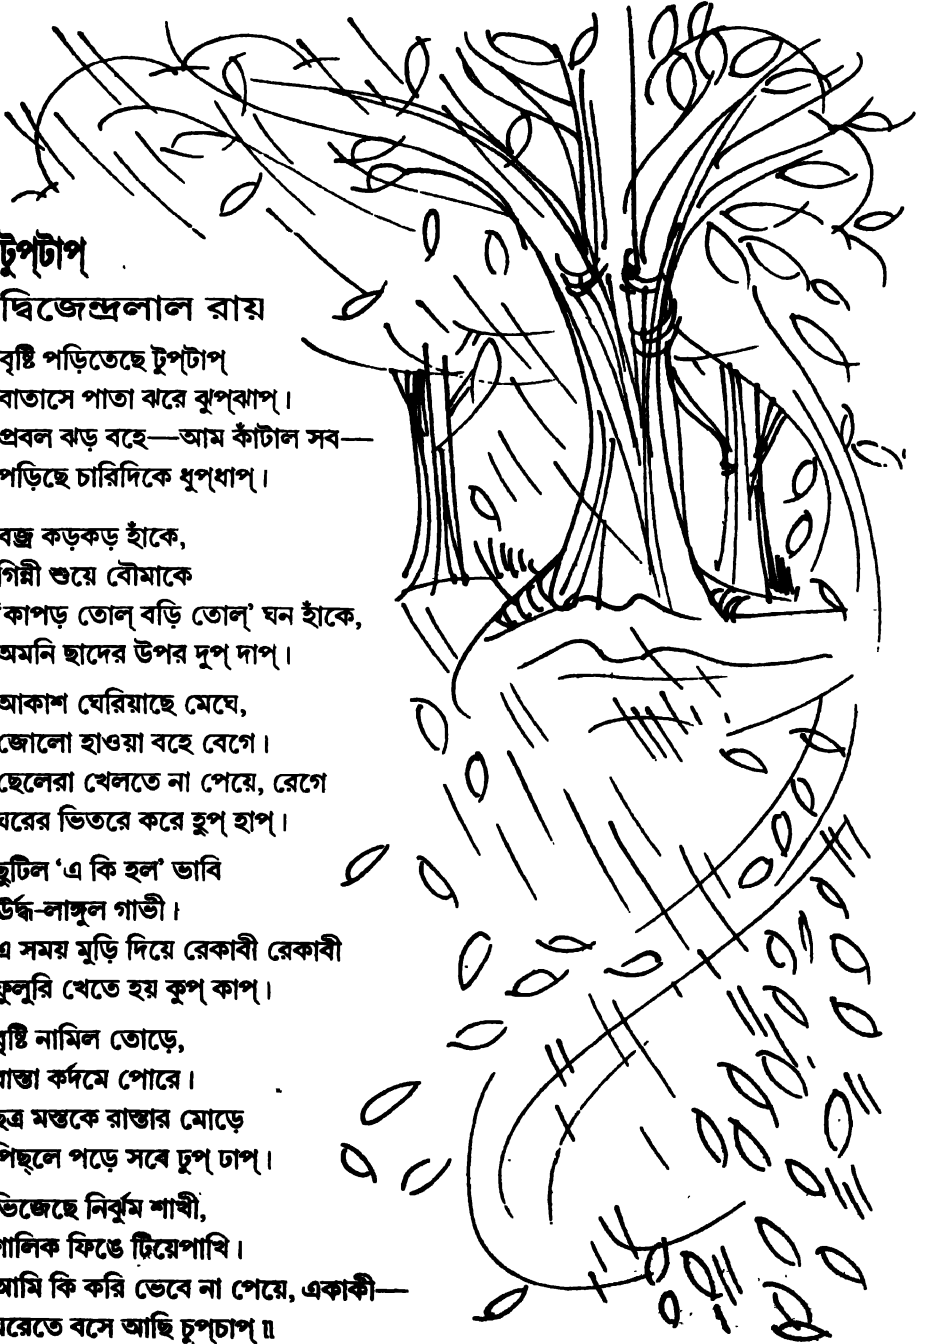 টুপ্‌টাপ্‌
দ্বিজেন্দ্রলাল রায়
বৃষ্টি পড়িতেছে টুপ্‌টাপ্‌
বাতাসে পাতা ঝরে ঝুপ্‌ঝাপ্‌।
প্রবল ঝড় বহে—আম কাঁটাল সব—
পড়িছে চারিদিকে ধুপ্‌ধাপ্‌।
বজ্র কড়কড় হাঁকে,
গিন্নী শুয়ে বৌমাকে
'কাপড় তোল্‌ বড়ি তোল্‌' ঘন হাঁকে,
অমনি ছাদের উপর দুপ্‌ দাপ্‌।
আকাশ ঘেরিয়াছে মেঘে,
জোলো হাওয়া বহে বেগে।
ছেলেরা খেলতে না পেয়ে, রেগে
ঘরের ভিতরে করে হুপ্‌ হাপ্‌।
ছুটিল 'এ কি হল' ভাবি
উর্দ্ধ-লাঙ্গুল গাভী।
এ সময় মুড়ি দিয়ে রেকাবী রেকাবী
ফুলুরি খেতে হয় কুপ্‌ কাপ্‌।
বৃষ্টি নামিল তোড়ে,
রাস্তা কর্দমে পোরে।
ছত্র মস্তকে রাস্তার মোড়ে
পিছ্‌লে পড়ে সবে ঢুপ্‌ ঢাপ্‌।
ভিজেছে নির্ঝুম শাখী,
শালিক ফিঙে টিয়েপাখি।
আমি কি করি ভেবে না পেয়ে, একাকী—
ঘরেতে বসে আছি চুপ্‌চাপ্‌॥